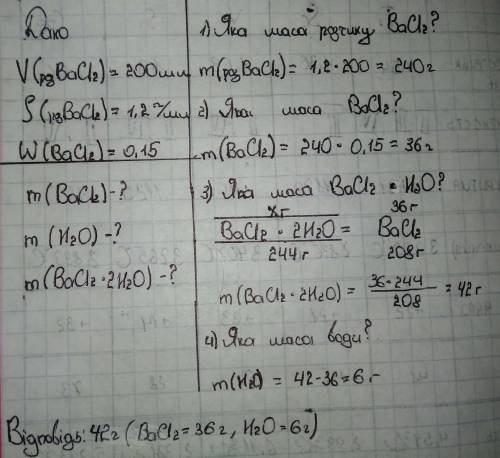 Дано
V(рзBaCl2) = 200 мл
ρ(рзBaCl2) = 1,2 г/мл
W(BaCl2) = 0,15
m(BaCl2) - ?
m(H2O) - ?
m(BaCl2 · 2H2O) - ?
1) Яка маса розчину BaCl2?
m(розBaCl2) = 1,2 · 200 = 240 г
2) Яка маса BaCl2?
m(BaCl2) = 240 · 0,15 = 36 г
3) Яка маса BaCl2 · H2O?
xг 36 г
BaCl2 · 2H2O = BaCl2
244 г 208 г
m(BaCl2 · 2H2O) = 36 · 244 / 208 = 42 г
4) Яка маса води?
m(H2O) = 42 - 36 = 6 г
Відповідь: 42 г (BaCl2 = 36 г, H2O = 6 г)